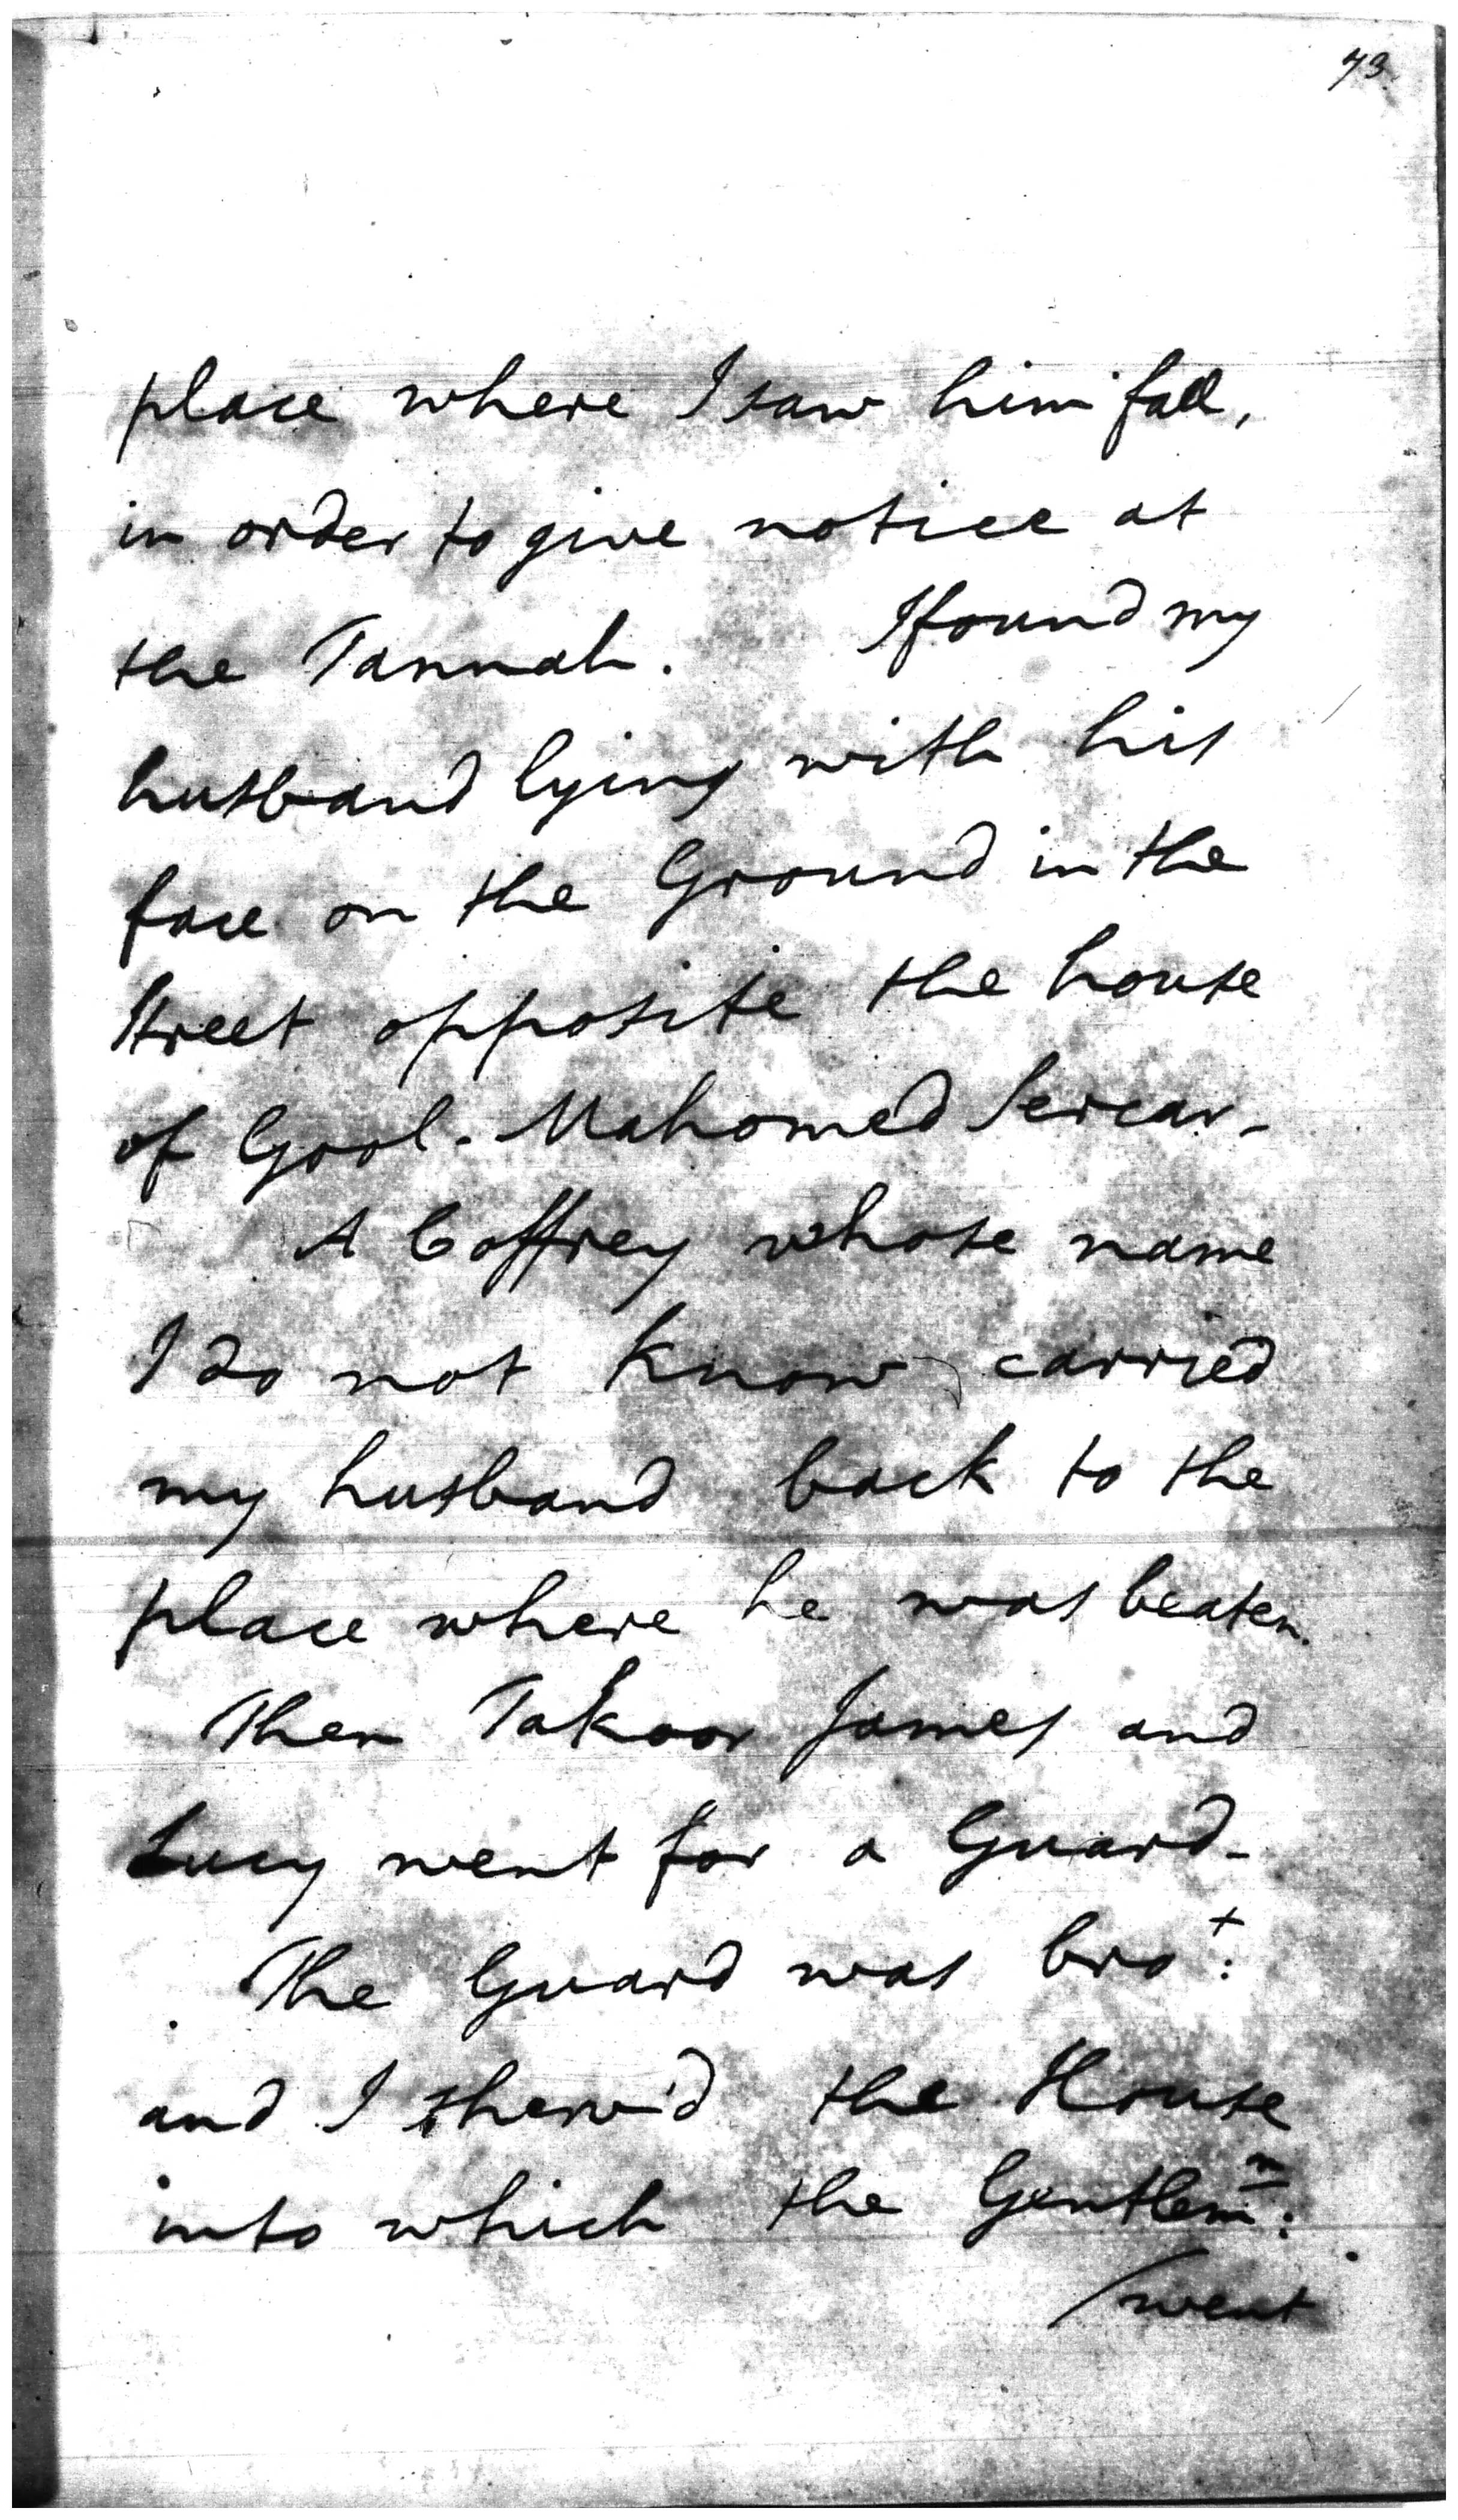 73.
place where I saw him fall,
in order to give notice at
the Tannah. I found my
husband lying with his
face on the Ground in the
Street opposite the house
of Gool. Mahomed Sercar-
A Coffrey whose name
I do not know, carried
my husband back to the
place where he was beaten.
Then Takoor James and
Lucy went for a Guard-
The Guard was bro^t:
and I shew'd the House
into which the Gentlem^n:
/went